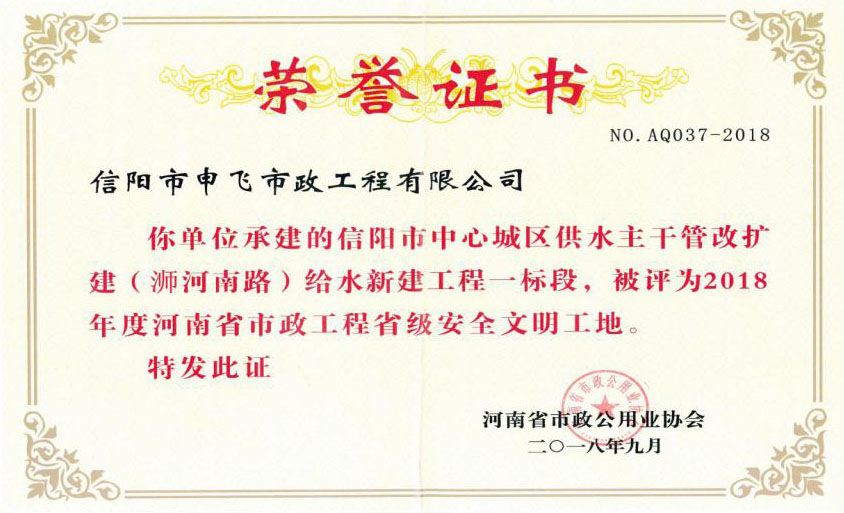 荣誉证书
NO.AQ037-2018
信阳市申飞市政工程有限公司
你单位承建的信阳市中心城区供水主干管改扩
建（浉河南路）给水新建工程一标段，被评为2018
年度河南省市政工程省级安全文明工地。
特发此证
河南省市政公用业协会
河南省市政公用业协会
二〇一八年九月